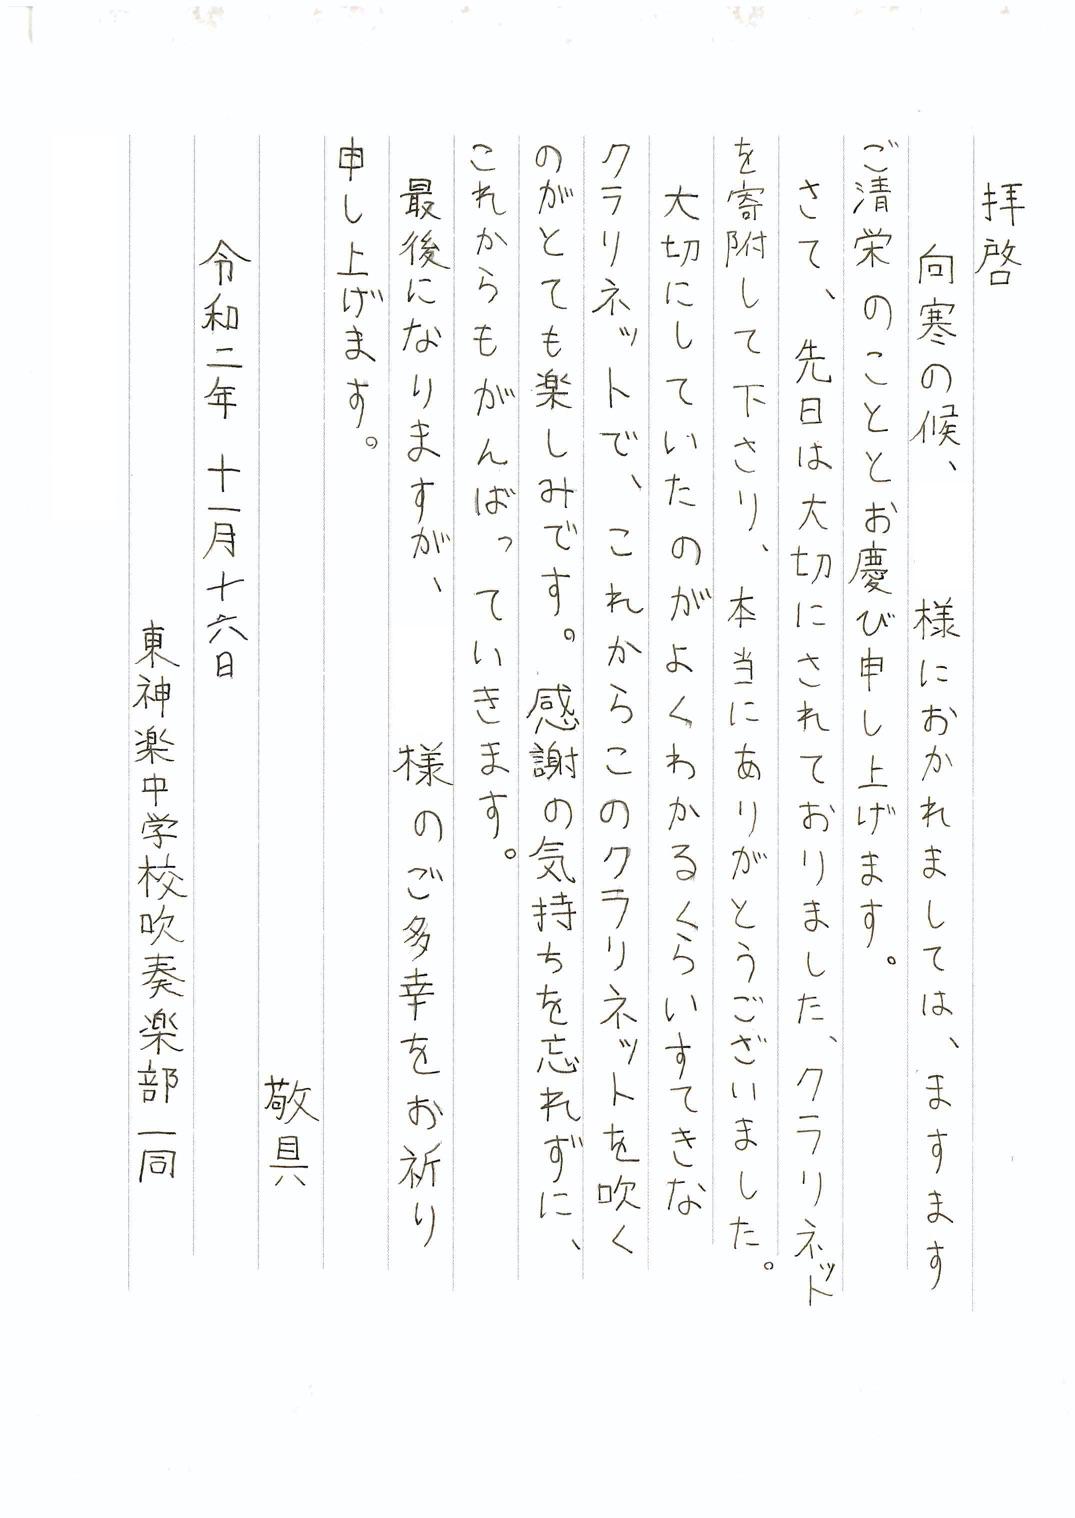 拝啓
向寒の候、　　様におかれましては、ますます
ご清栄のこととお慶び申し上げます。
さて、先日は大切にされておりました、クラリネット
を寄附して下さり、本当にありがとうございました。
大切にしていたのがよくわかるくらいすてきな
クラリネットで、これからこのクラリネットを吹く
のがとても楽しみです。感謝の気持ちを忘れずに、
これからもがんばっていきます。
最後になりますが、　　様のご多幸をお祈り
申し上げます。
敬具
令和二年　十一月十六日
東神楽中学校吹奏楽部一同